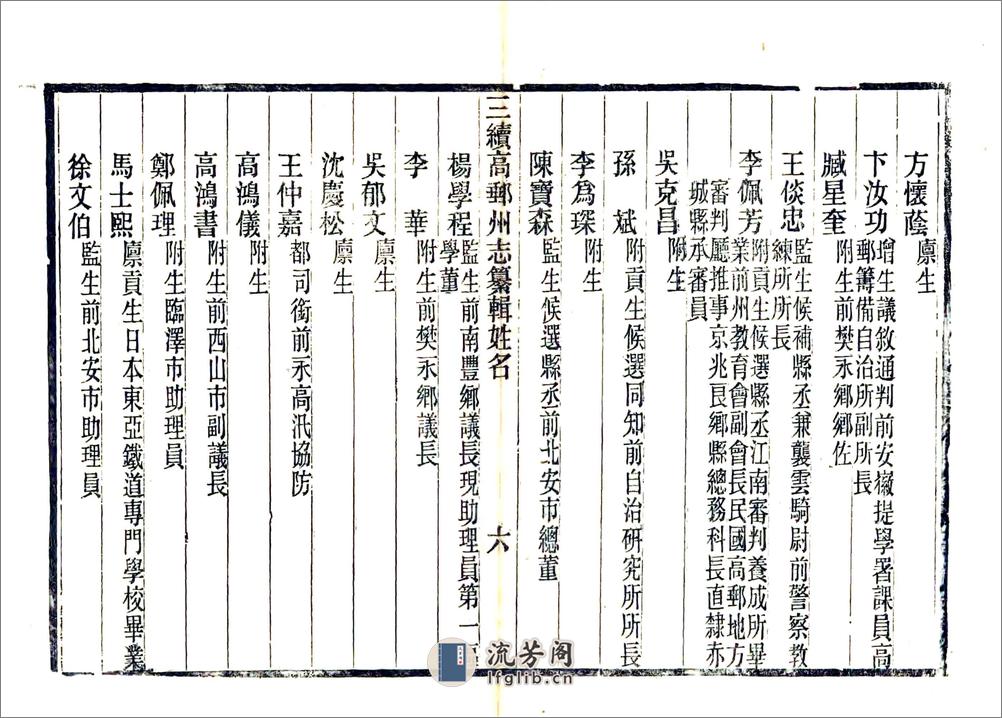 方懷蔭 廩生
卞汝功 增生議敘通判前安徽提學署課員高
郵籌備自治所副所長
臧星奎 附生前樊永鄉鄉佐
王倓忠 監生候補縣丞兼襲雲騎尉前警察教
練所所長
李佩芳 附貢生候選縣丞江南審判養成所畢
業前州教育會副會長民國高郵地方
審判廳推事京兆良鄉縣總務科長直隸赤
城縣承審員
吳克昌 附生
孫斌 附貢生候選同知前自治研究所所長
李爲琛 附生
陳寶森 監生候選縣丞前北安市總董
三續高郵州志纂輯姓名 六
楊學程 監生前南豐鄉議長現助理員第一
學董
李華 附生前樊永鄉議長
吳郁文 廩生
沈慶松 廩生
王仲嘉 都司銜前永高汛協防
高鴻儀 附生
高鴻書 附生前西山市副議長
鄭佩理 附生臨澤市助理員
馬士熙 廩貢生日本東亞鐵道專門學校畢業
徐文伯 監生前北安市助理員
流芳阁
lfglib.cn